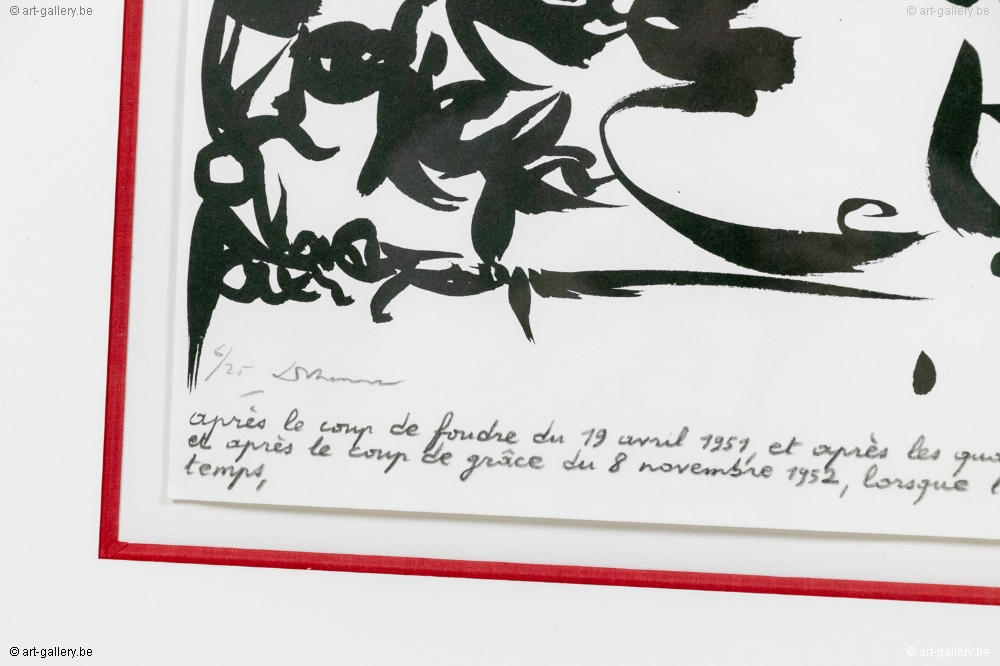 © art-gallery.be
© art-gallery.be
6/25
après le coup de foudre du 19 avril 1951, et après les qua
et après le coup de grâce du 8 novembre 1952, lorsque l
temps,
© art-gallery.be
© art-gallery.be